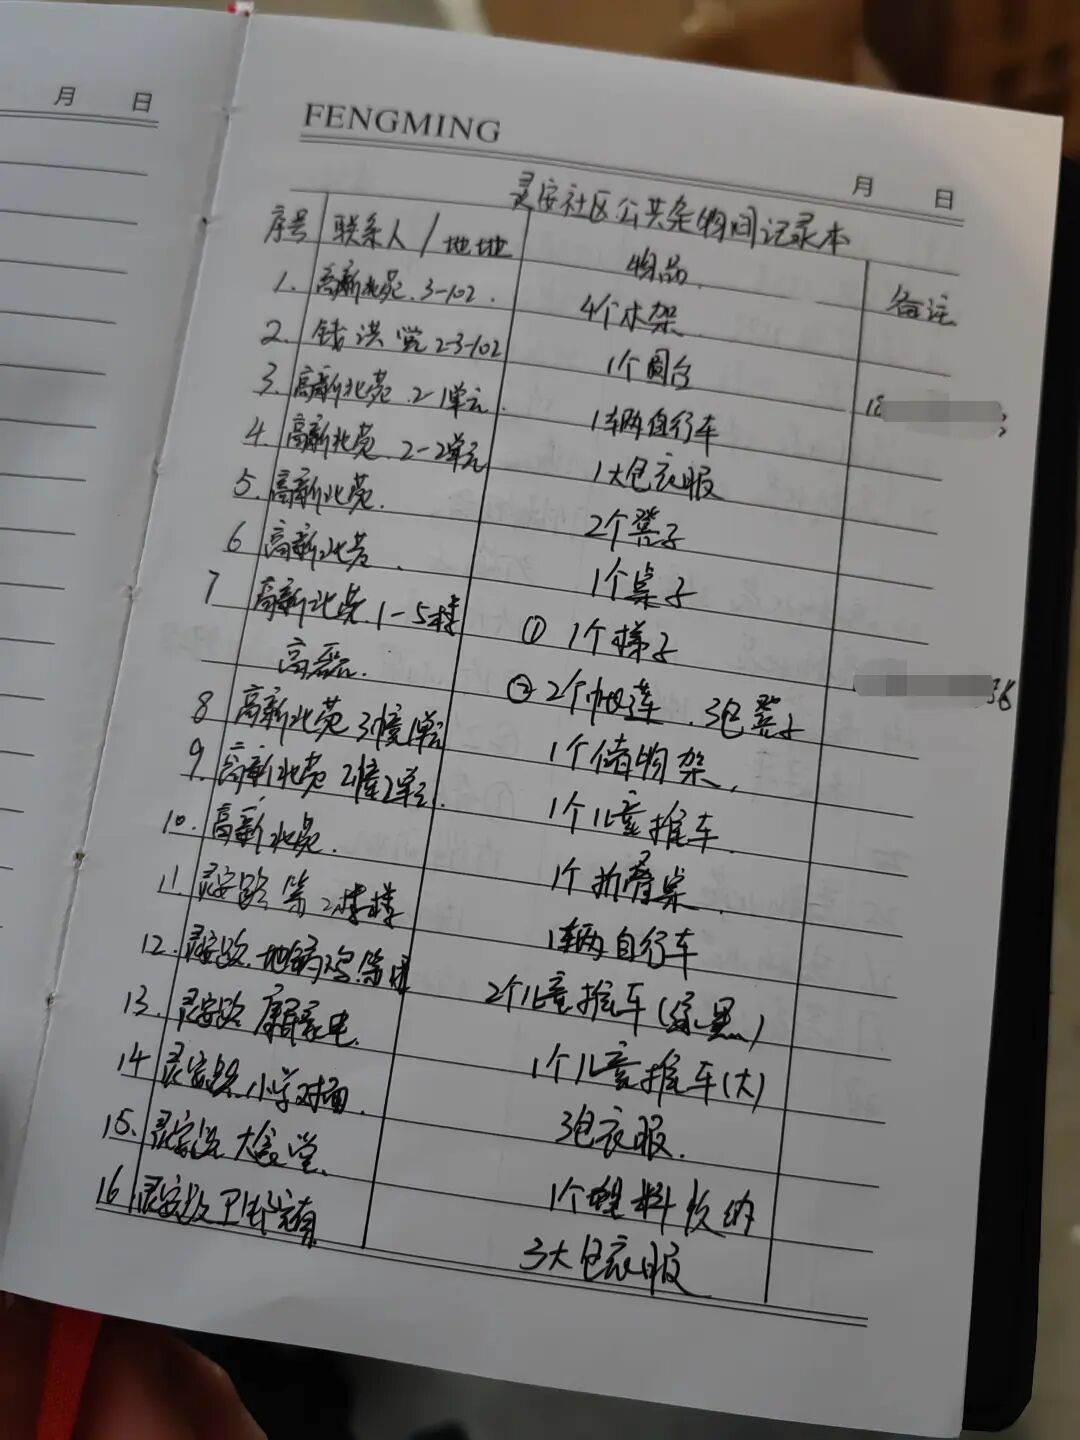 月 日
FENGMING
月 日
灵安社区公共杂物间记录本
序号 联系人/地地 物品 备注
1. 高新北苑.3-102. 4个木架
2. 钱洪 2-3-102 1个圆台 18
3. 高新北苑.2-1单元. 1辆自行车
4. 高新北苑.2-2单元 1大包衣服
5. 高新北苑. 2个凳子
6 高新北苑. 1个桌子
7 高新北苑.1-5楼 ① 1个梯子
高磊. ② 2个 3包凳子 36
8 高新北苑 3幢1单元 1个储物架,
9. 高新北苑 2幢2单元. 1个儿童推车.
10. 高新北苑. 1个折叠桌.
11. 灵安路 第2 1辆自行车
12. 灵安路. 地锅鸡 2个儿童推车( 黑)
13. 灵安路 家电. 1个儿童推车(大)
14 灵安路.小学对面. 3包衣服.
15. 灵安 大食堂. 1个塑料收纳
16 灵安 卫生 3大包衣服